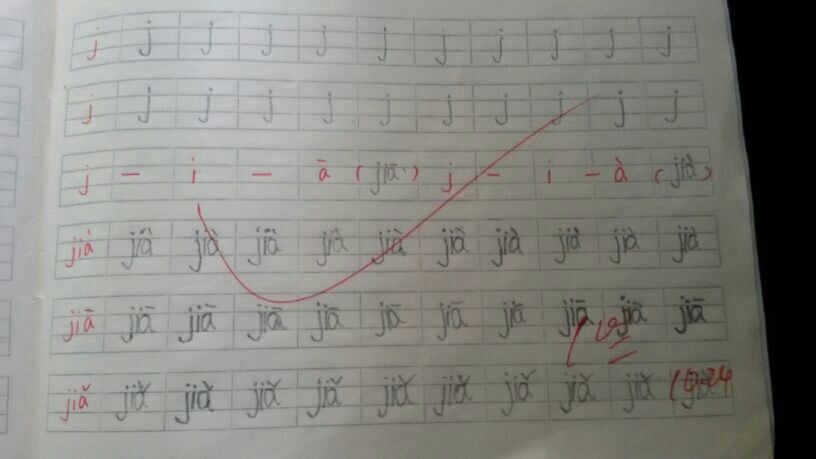 j j j j j j j j j j j
j j j j j j j j j j j
j — i — ā (jiā) j — i — à (jià)
jià jià jià jià jià jià jià jià jià jià jià
jiā jiā jiā jiā jiā jiā jiā jiā jiā jiā jiā
jiǎ jiǎ jiǎ jiǎ jiǎ jiǎ jiǎ jiǎ jiǎ jiǎ